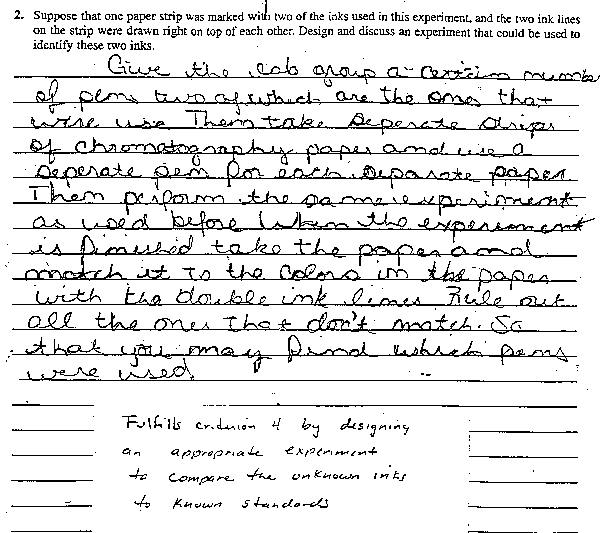 2. Suppose that one paper strip was marked with two of the inks used in this experiment, and the two ink lines
on the strip were drawn right on top of each other. Design and discuss an experiment that could be used to
identify these two inks.
Give the lab group a certain number
of pens two of which are the ones that
were use Then take seperate strips
of chromatography paper and use a
seperate pen for each separate paper
Then perform the same experiment
as used before When the experiment
is finished take the paper and
match it to the colors in the paper
with the double ink lines Rule out
all the ones that don't match. So
that you may find which pens
were used.
Fulfills criterion 4 by designing
an appropriate experiment
to compare the unknown inks
to known standards